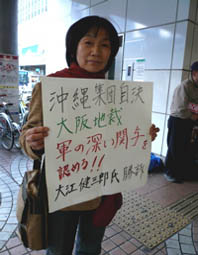 沖縄集団自決
大阪地裁
軍の深い関与を
認める!!
大江健三郎氏 勝訴